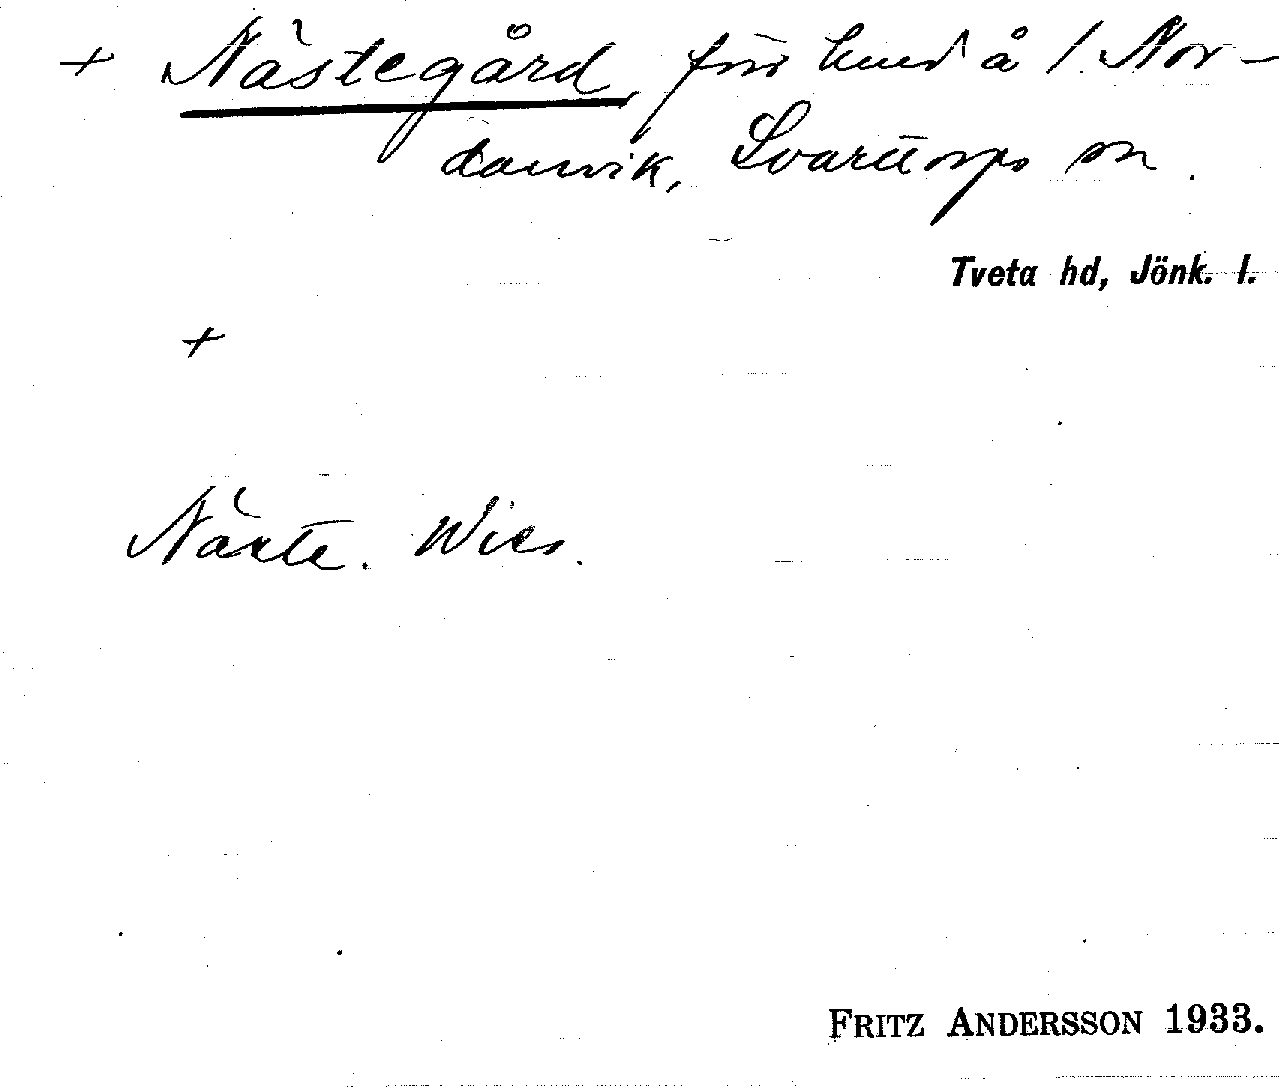 + Nästegård, förr hmd å 1 Nor-
danvik, Svarttorps sn.
Tveta hd, Jönk. l.
+
Näste. Wies.
FRITZ ANDERSSON 1933.